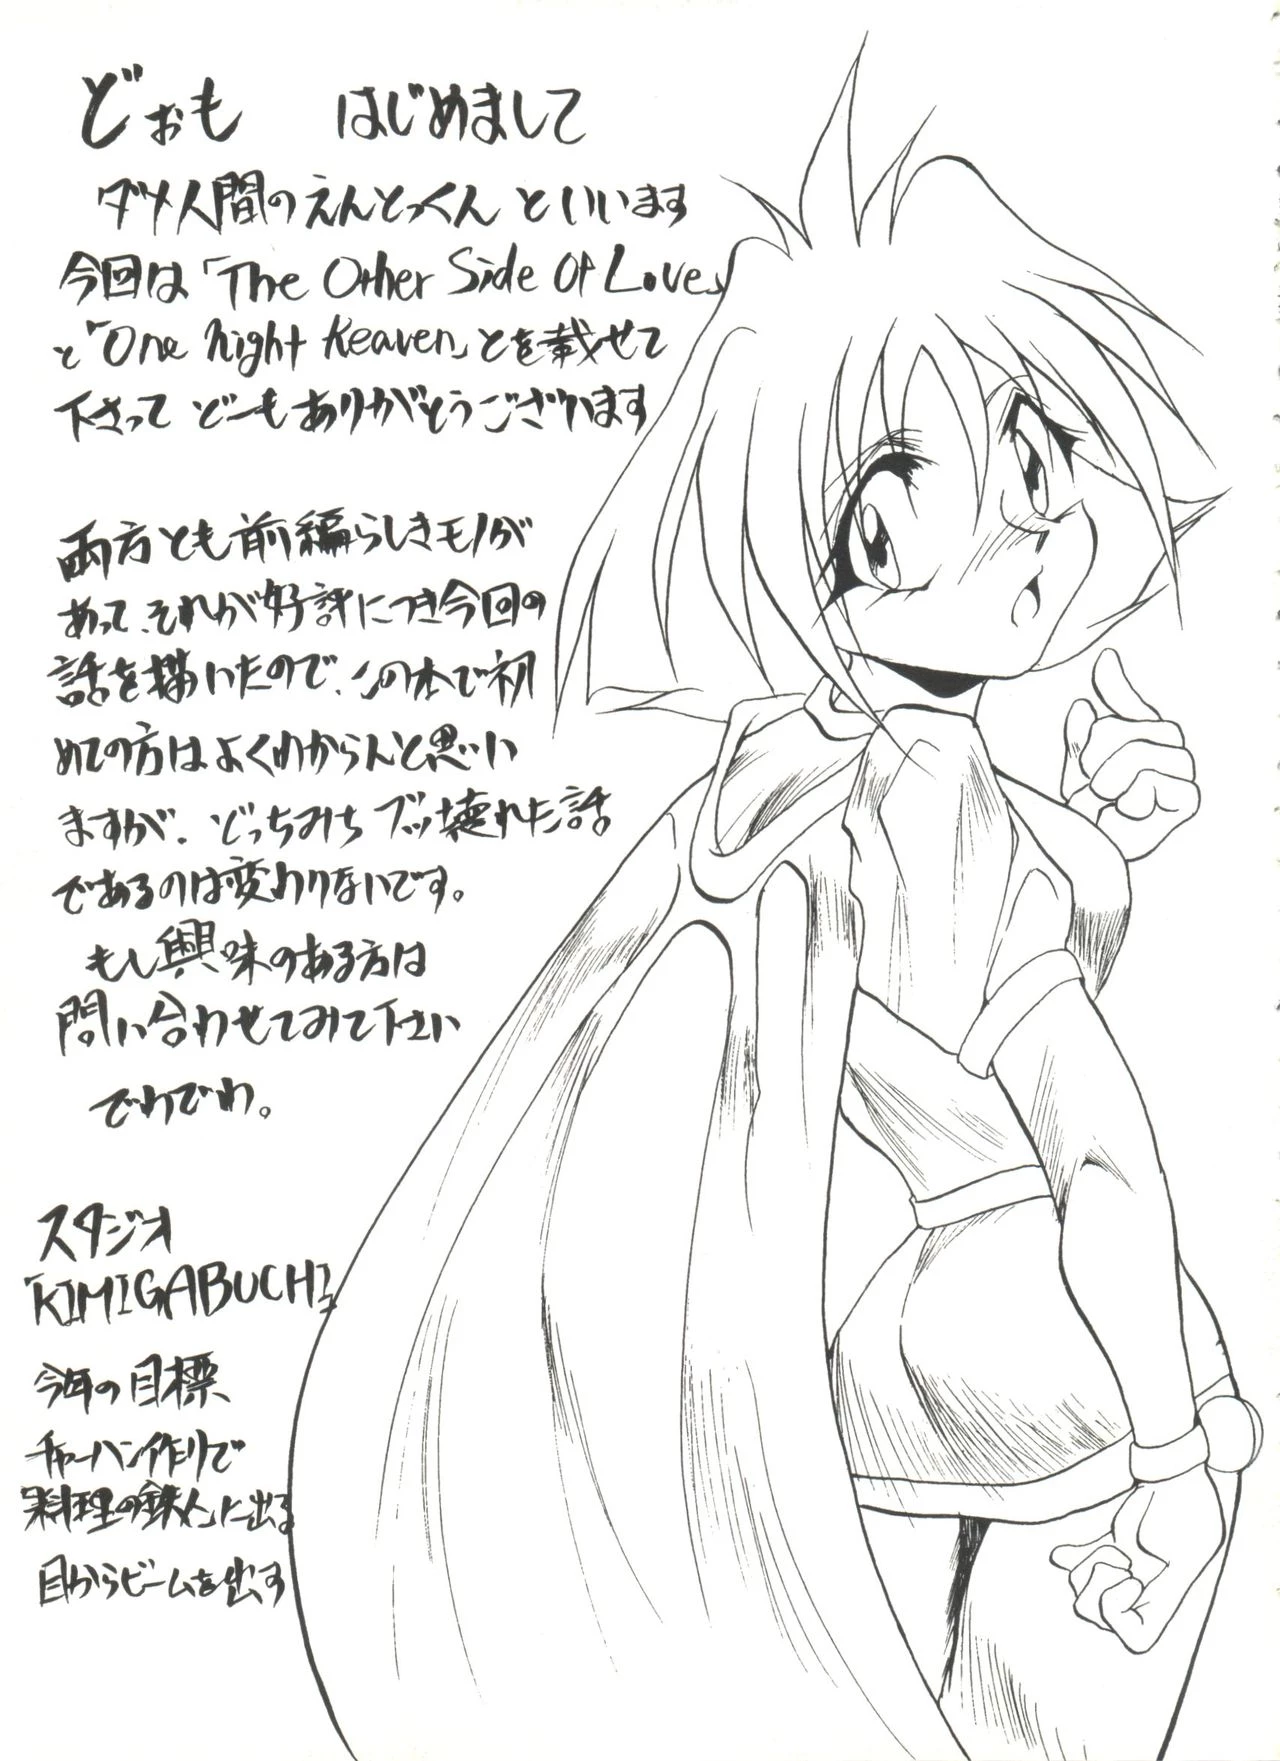 どぉも はじめまして
ダメ人間のえんとっくん といいます
今回は「The Other Side Of Love」
と「One Night Heaven」とを載せて
下さって どーもありがとうございます
両方とも前編らしきモノが
あって、それが好評につき今回の
話を描いたので、この本で初
めての方はよくわからんと思い
ますが、どっちみち ブッ壊れた話
であるのは変わりないです。
もし興味のある方は
問い合わせてみて下さい
でわでわ。
スタジオ
「KIMIGABUCHI」
今年の目標
チャーハン作りで
「料理の鉄人」に出る
目からビームを出す